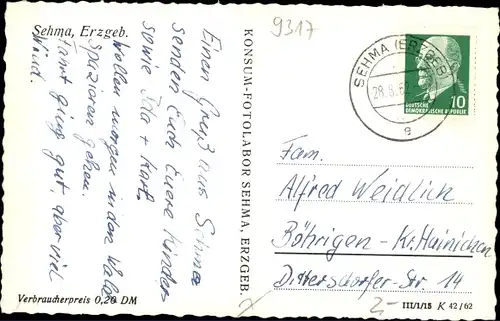 Sehma, Erzgeb.
Einen Gruß aus Sehma
senden Euch Eure Kinder
sowie Ida + Karl.
Wollen morgen in den Wald
Spazieren gehen.
Fahrt ging gut, aber viel
Wind.
Verbraucherpreis 0,20 DM
KONSUM-FOTOLABOR SEHMA, ERZGEB.
9317
SEHMA (ERZGEB)
28.8.62
e
10
DEUTSCHE
DEMOKRATISCHE REPUBLIK
Fam.
Alfred Weidlich
Böhrigen - Kr. Hainichen
Dittersdorfer-Str. 14
2,-
III/1/15 K 42/62